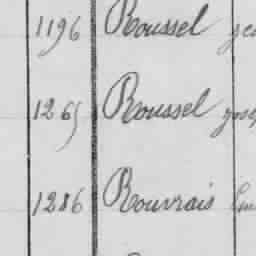 1196 Roussel
1265 Roussel
1286 Rouvrais